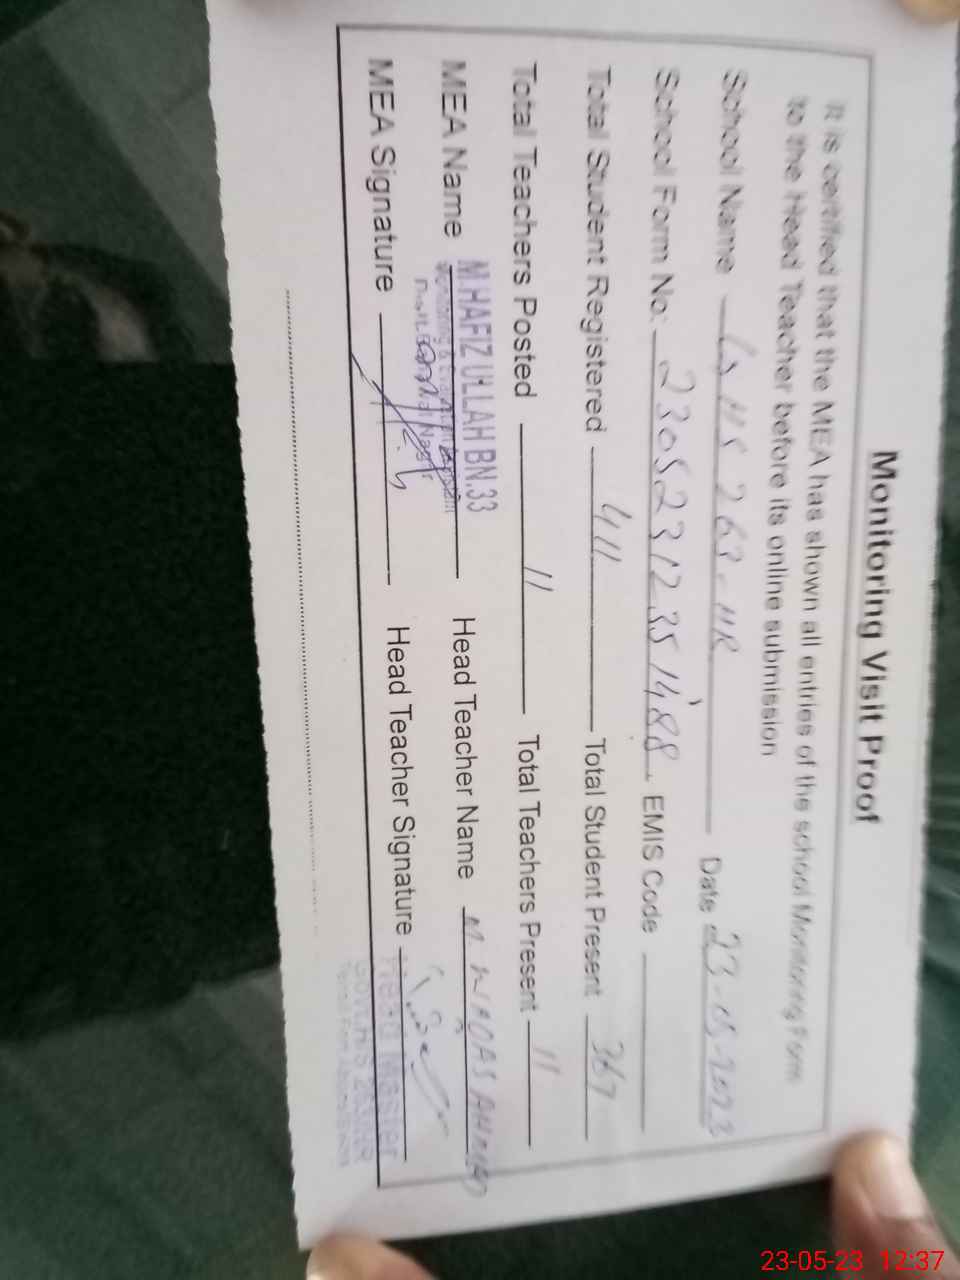 Monitoring Visit Proof
It is certified that the MEA has shown all entries of the school Monitoring Form
to the Head Teacher before its online submission
School Name GHS 263-HR Date 23-05-2023
School Form No: 2305231235 1488 EMIS Code
Total Student Registered 411 Total Student Present 367
Total Teachers Posted 11 Total Teachers Present 11
MEA Name M.HAFIZ ULLAH BN.33 Head Teacher Name M. WAQAS AHMAD
Monitoring & Evaluation
MEA Signature Head Teacher Signature
Head Master
Govt. H/S 263/HR
23-05-23 12:37